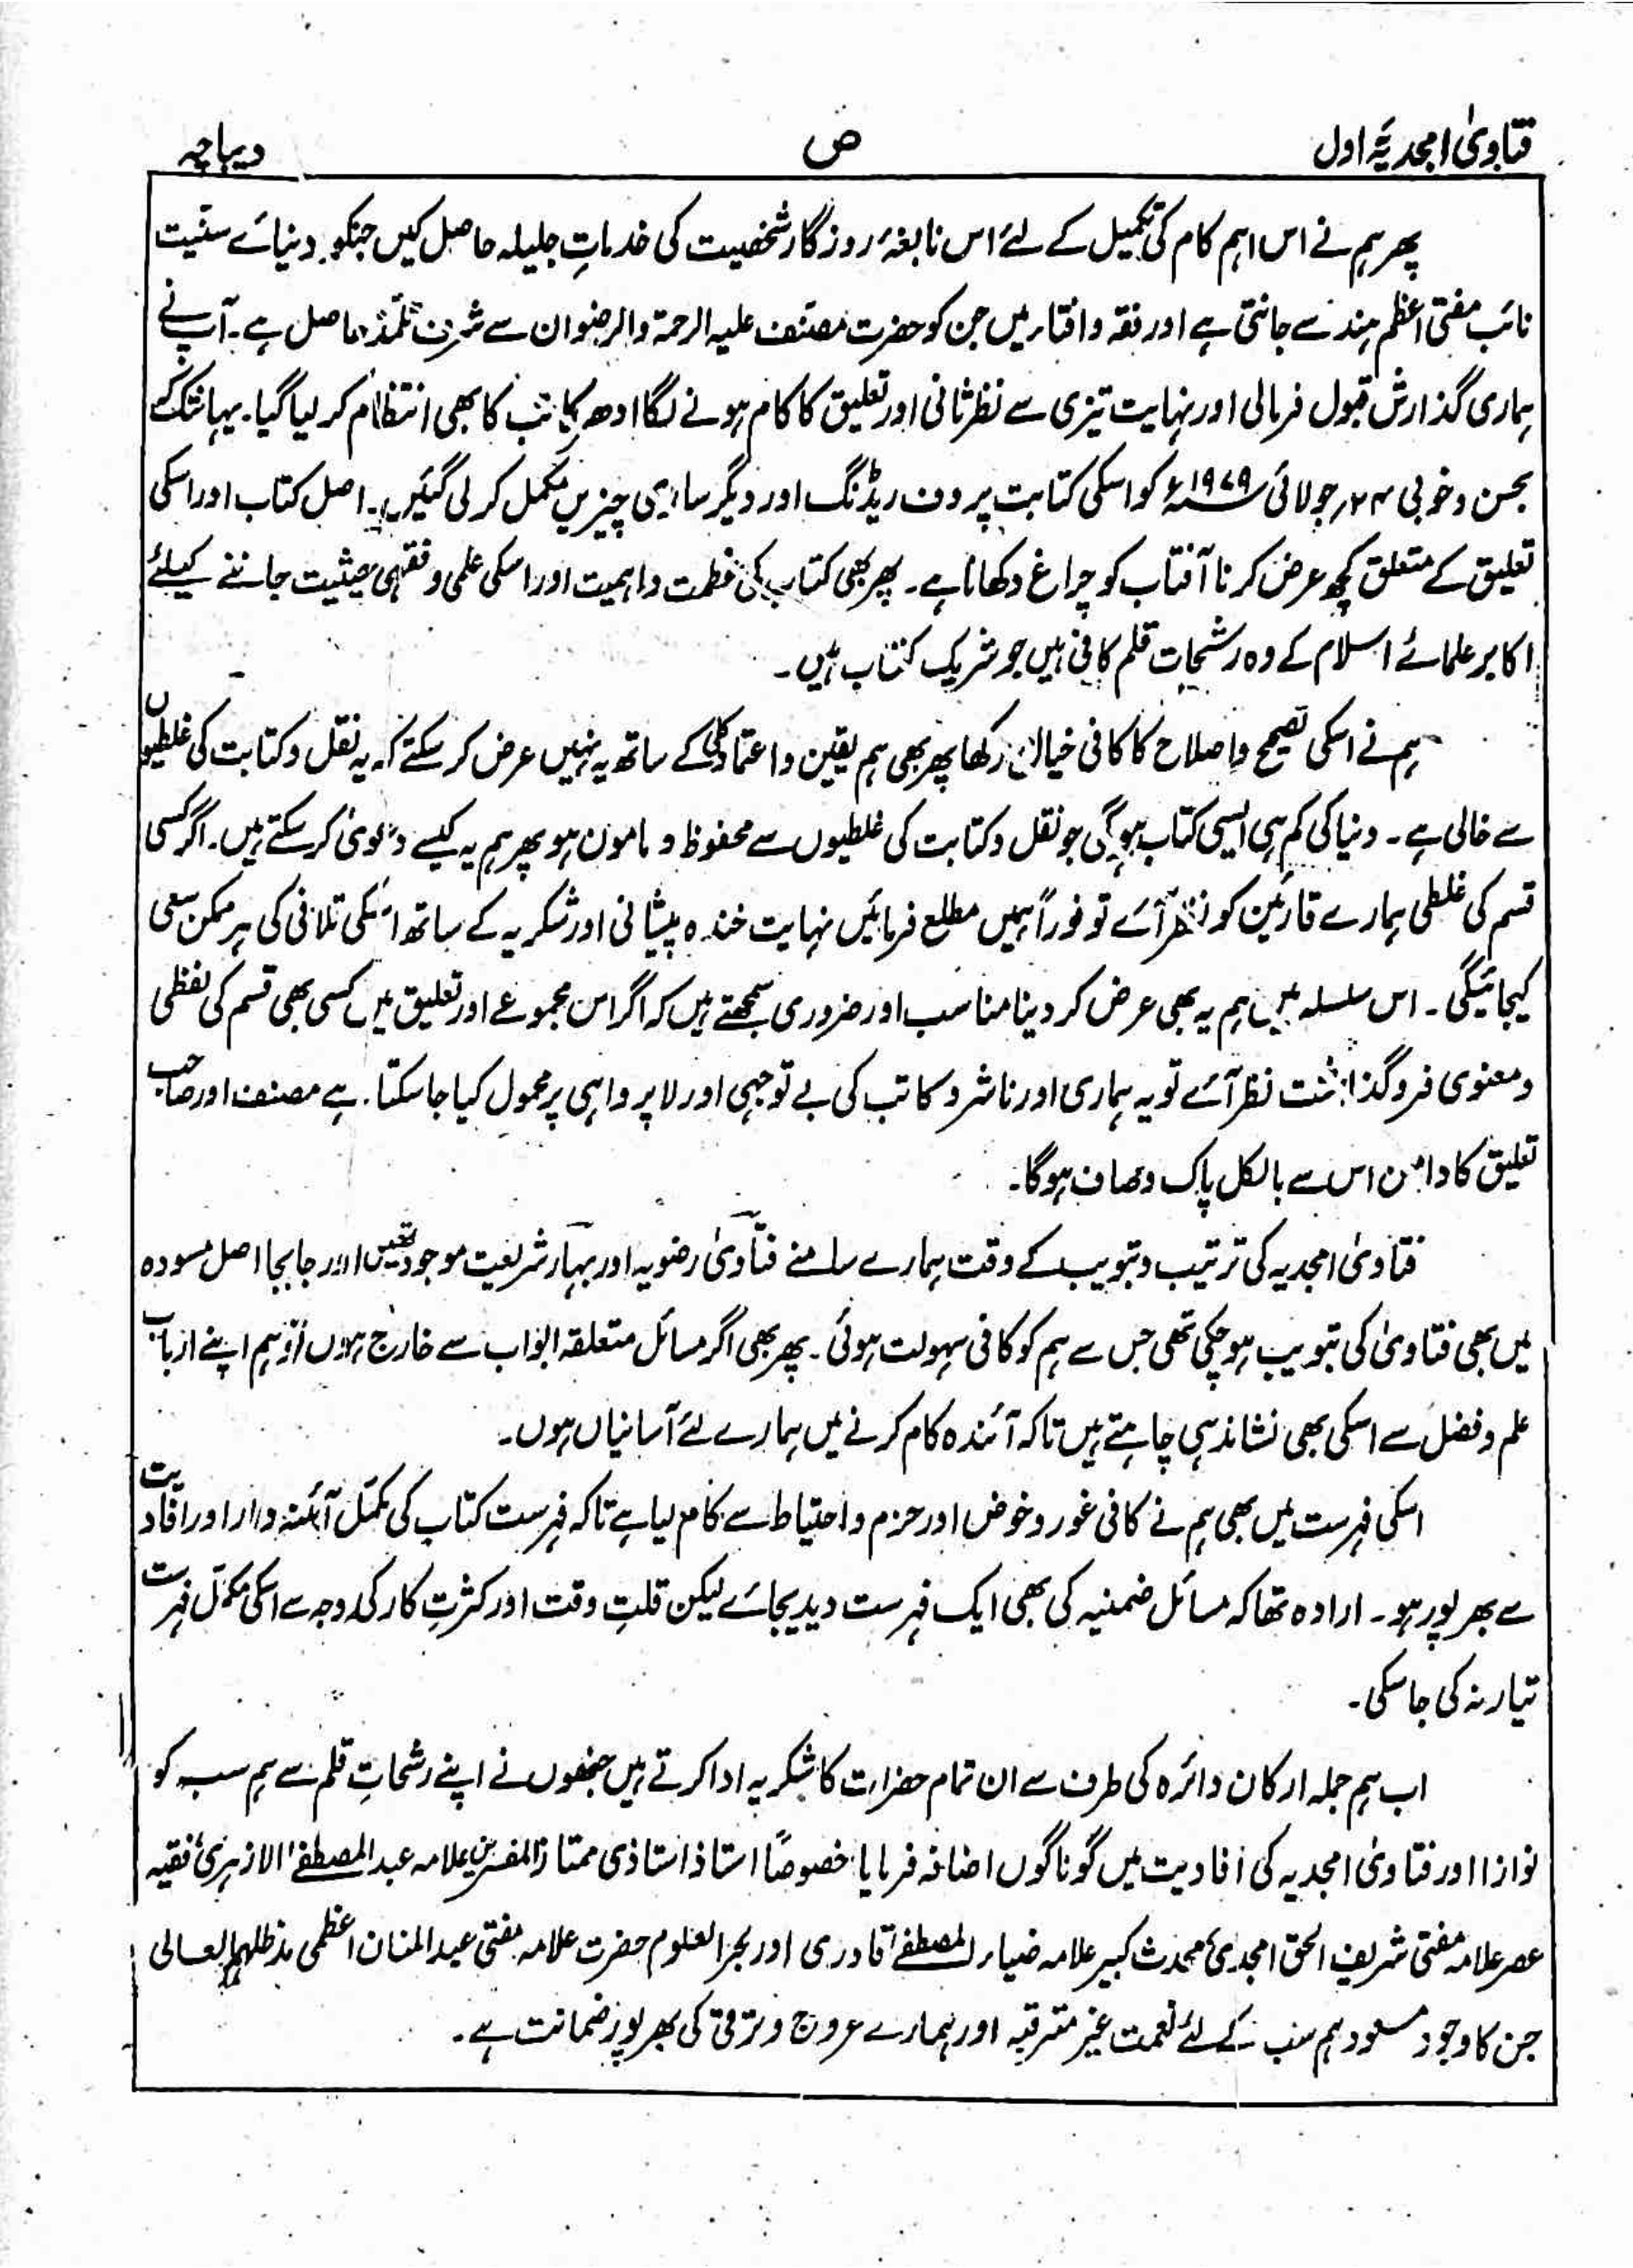 فتاویٰ امجدیہ اول
ص
دیباچہ
پھر ہم نے اس اہم کام کی تکمیل کے لئے اس نابغۂ روزگار شخصیت کی خدماتِ جلیلہ حاصل کیں جنکو دنیائے سنّیت
نائب مفتی اعظم ہند سے جانتی ہے اور فقہ و افتار میں جن کو حضرت مصنف علیہ الرحمۃ والرضوان سے شرف تلمذ حاصل ہے۔ آپ نے
ہماری گذارش قبول فرمالی اور نہایت تیزی سے نظر ثانی اور تعلیق کا کام ہونے لگا ادھر کاتب کا بھی انتظام کر لیا گیا۔ یہانتک کہ
بحسن و خوبی ۲۴؍جولائی ۱۹۷۹ء کو اسکی کتابت پروف ریڈنگ اور دیگر ساری چیزیں مکمل کر لی گئیں۔ اصل کتاب اور اسکی
تعلیق کے متعلق کچھ عرض کرنا آفتاب کو چراغ دکھانا ہے۔ پھر بھی کتاب کی عظمت و اہمیت اور اسکی علمی و فقہی حیثیت جاننے کیلئے
اکابر علمائے اسلام کے وہ رشحات قلم کافی ہیں جو شریک کتاب ہیں۔
ہم نے اسکی تصحیح و اصلاح کا کافی خیال رکھا پھر بھی ہم یقین و اعتماد کلی کے ساتھ یہ نہیں عرض کر سکتے کہ یہ نقل و کتابت کی غلطیوں
سے خالی ہے۔ دنیا کی کم ہی ایسی کتاب ہوگی جو نقل و کتابت کی غلطیوں سے محفوظ و مامون ہو پھر ہم یہ کیسے دعویٰ کر سکتے ہیں۔ اگر کسی
قسم کی غلطی ہمارے قارئین کو نظر آئے تو فوراً ہمیں مطلع فرمائیں نہایت خندہ پیشانی اور شکریہ کے ساتھ اسکی تلافی کی ہر ممکن سعی
کیجائیگی۔ اس سلسلہ میں ہم یہ بھی عرض کر دینا مناسب اور ضروری سمجھتے ہیں کہ اگر اس مجموعے اور تعلیق میں کسی بھی قسم کی لفظی
و معنوی فروگذاشت نظر آئے تو یہ ہماری اور ناشر و کاتب کی بے توجہی اور لاپرواہی پر محمول کیا جاسکتا ہے مصنف اور صاحب
تعلیق کا دامن اس سے بالکل پاک و صاف ہوگا۔
فتاویٰ امجدیہ کی ترتیب و تبویب کے وقت ہمارے سامنے فتاویٰ رضویہ اور بہار شریعت موجود تھیں اور جابجا اصل مسودہ
میں بھی فتاویٰ کی تبویب ہو چکی تھی جس سے ہم کو کافی سہولت ہوئی۔ پھر بھی اگر مسائل متعلقہ ابواب سے خارج ہوں تو ہم اپنے ارباب
علم و فضل سے اسکی بھی نشاندہی چاہتے ہیں تاکہ آئندہ کام کرنے میں ہمارے لئے آسانیاں ہوں۔
اسکی فہرست میں بھی ہم نے کافی غور و خوض اور حزم و احتیاط سے کام لیا ہے تاکہ فہرست کتاب کی مکمل آئینہ دار اور افادیت
سے بھر پور ہو۔ ارادہ تھا کہ مسائل ضمنیہ کی بھی ایک فہرست دیدیجائے لیکن قلتِ وقت اور کثرتِ کار کی وجہ سے اسکی مکمل فہرست
تیار نہ کی جاسکی۔
اب ہم جملہ ارکان دائرہ کی طرف سے ان تمام حضرات کا شکریہ ادا کرتے ہیں جنھوں نے اپنے رشحاتِ قلم سے ہم سب کو
نوازا اور فتاویٰ امجدیہ کی افادیت میں گوناگوں اضافہ فرمایا خصوصاً استاذ استاذی ممتاز المفسرین علامہ عبد المصطفےٰ الازہری فقیہ
عصر علامہ مفتی شریف الحق امجدی محدث کبیر علامہ ضیاء المصطفےٰ قادری اور بحر العلوم حضرت علامہ مفتی عبد المنان اعظمی مدظلہم العالی
جن کا وجود مسعود ہم سب کے لئے نعمت غیر مترقبہ اور ہمارے عروج و ترقی کی بھر پور ضمانت ہے۔